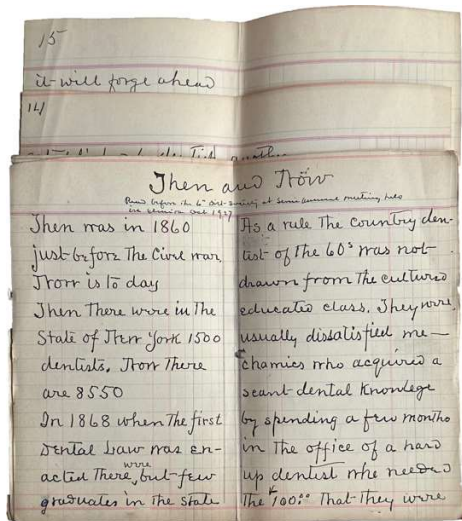 15
it will forge ahead
14
another
Then and Now
Read before the 6th Dist. Society at Semi annual meeting held
in Oct 1927
Then was in 1860
just before the Civil war,
Now is to day
Then There were in the
State of New York 1500
dentists. Now There
are 8550
In 1868 when the first
Dental Law was en-
acted there were but few
graduates in the State
As a rule the country den-
tist of the 60s was not
drawn from the cultured
educated class. They were
usually dissatisfied me-
chanics who acquired a
scant dental knowlege
by spending a few months
in the office of a hard
up dentist who needed
the $100.00 That they were